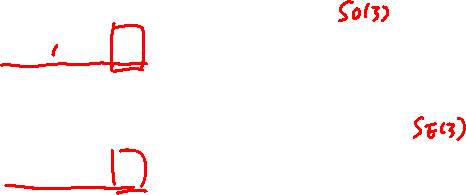 SO(3)
SE(3)